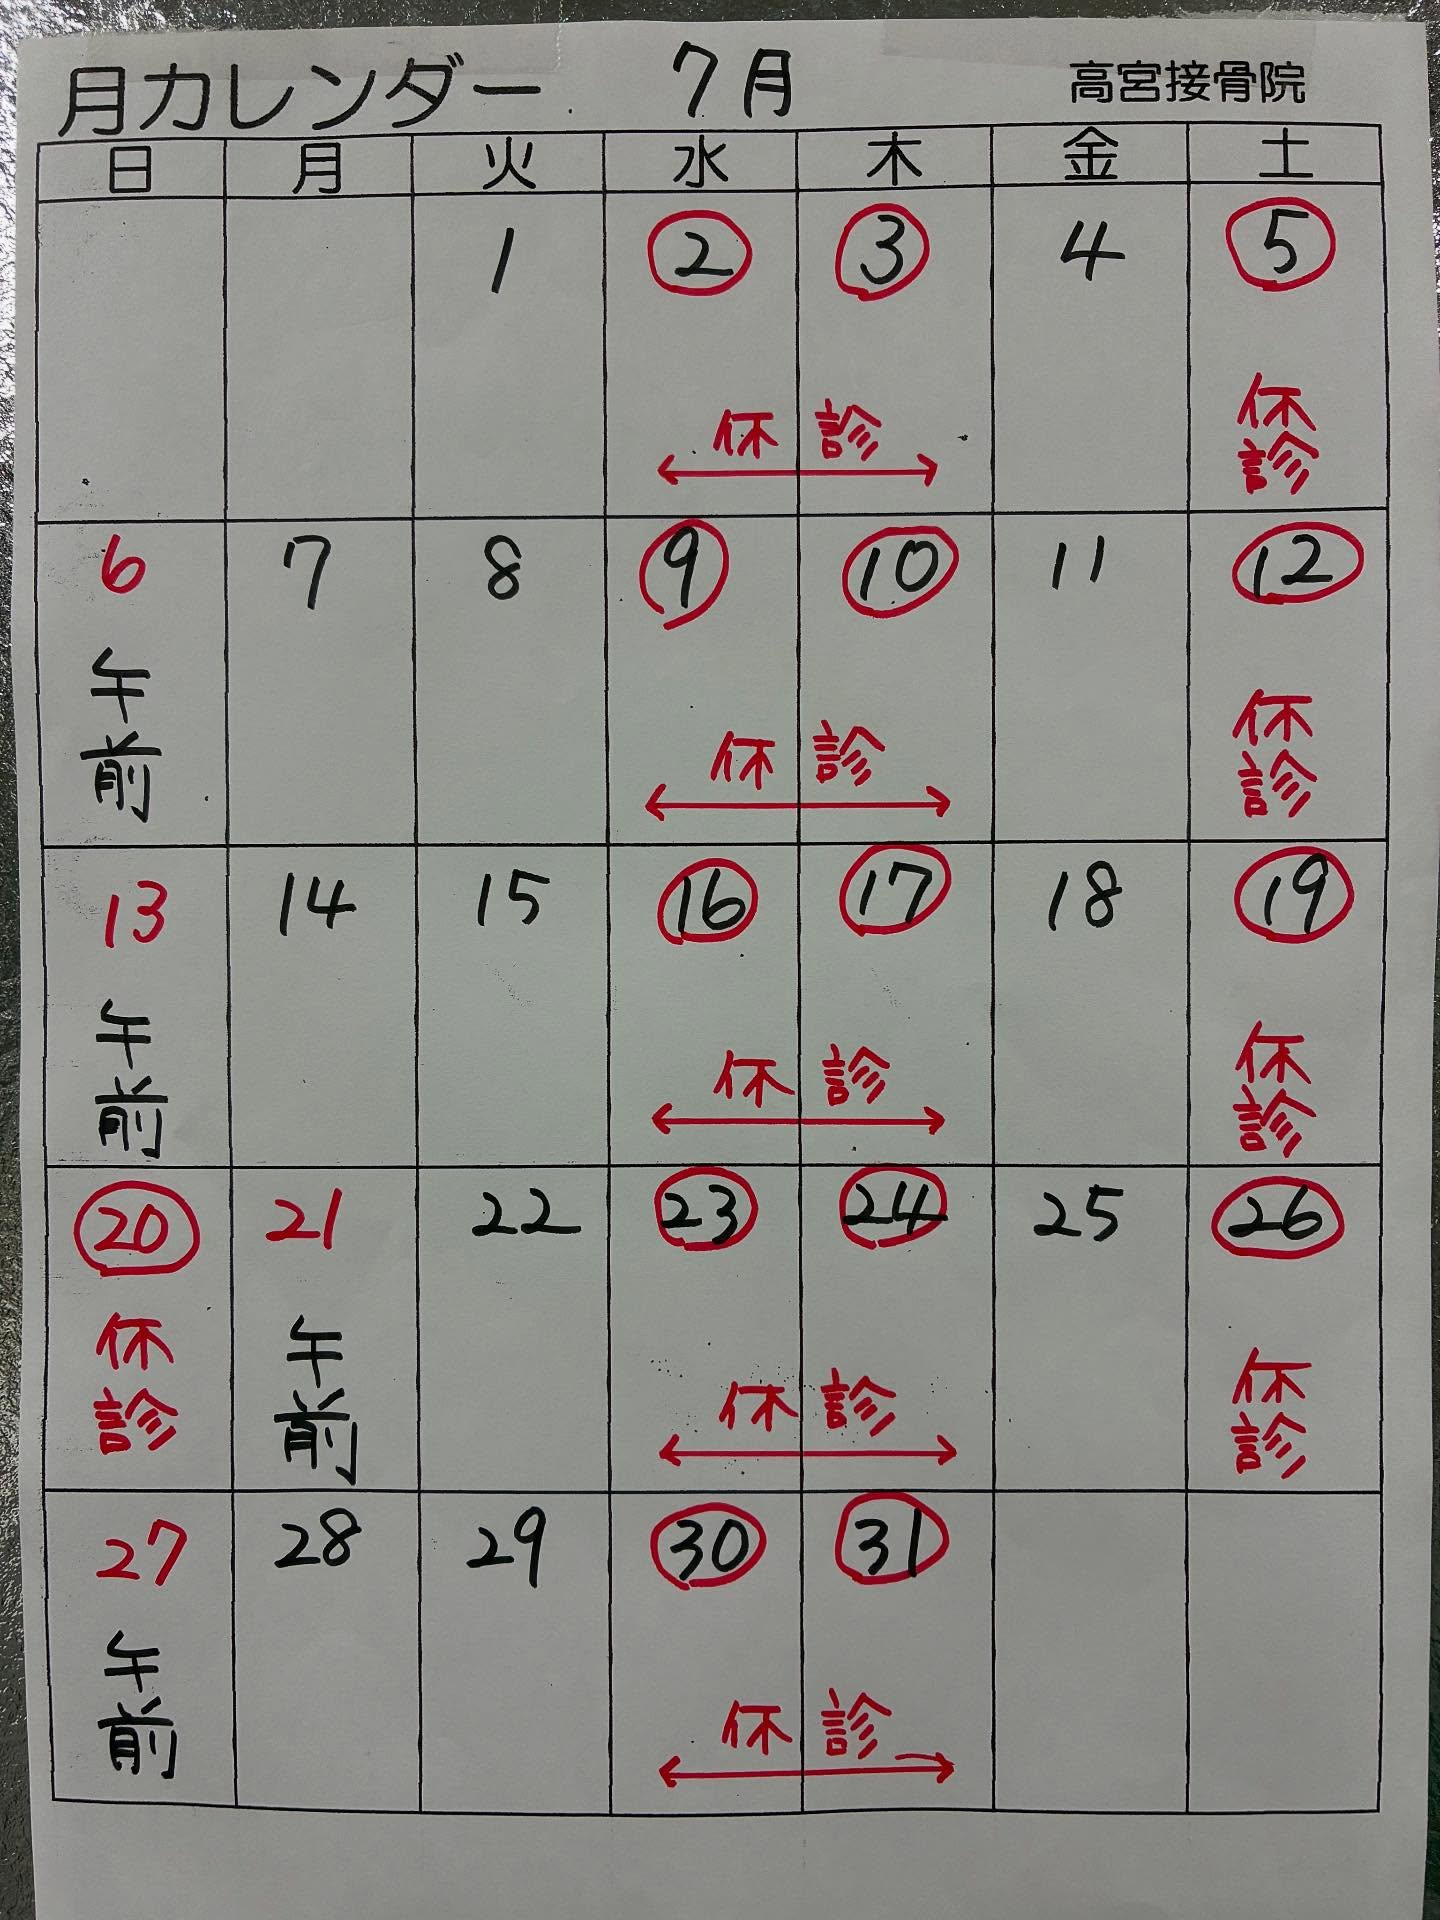 月カレンダー 7月 高宮接骨院
日 月 火 水 木 金 土
1 2 3 4 5
休診 休診
6 7 8 9 10 11 12
午前 休診 休診
13 14 15 16 17 18 19
午前 休診 休診
20 21 22 23 24 25 26
休診 午前 休診 休診
27 28 29 30 31
午前 休診